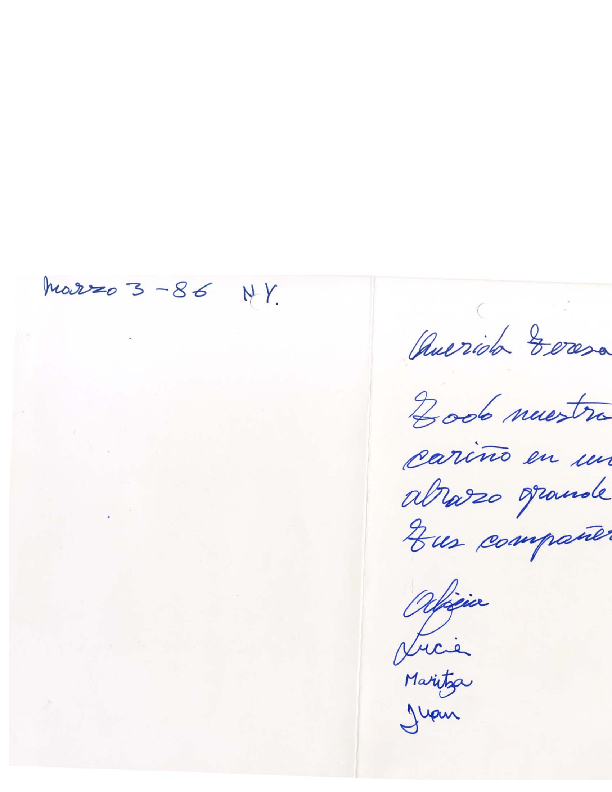 Marzo 3 - 86 N.Y.
Querida Teresa
Todo nuestro
cariño en un
abrazo grande
Tus compañer
Alicia
Lucia
Maritza
Juan